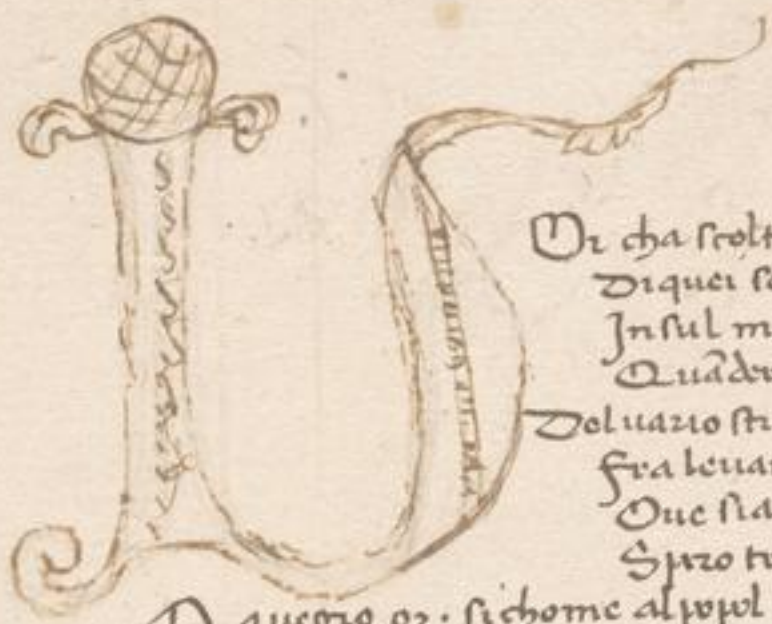 V
Or cha scolt
Di quei so
In sul m
Quãder
Del uario sti
Fra le uan
Oue sia
Spero tr
si chome al popol